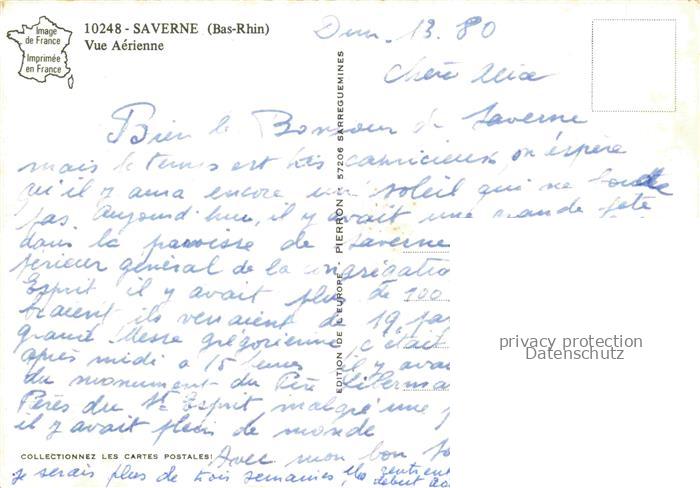 Image
de France
Imprimée
en France
10248 - SAVERNE (Bas-Rhin)
Vue Aérienne
Dim. 13. 80
Chère Alice
Bien le Bonjour de Saverne
mais le temps est très capricieux, on espère
qu'il y aura encore un soleil qui ne boude
pas Aujourd'hui, il y avait une grande fête
dans la paroisse de Saverne
périeur général de la congrégatio
Esprit il y avait plus de 100
traient ils venaient de 19 pa
grand Messe grégorienne c'était
après midi à 15 heures il y avai
du monument du Père Liberma
Pères du St Esprit malgré une p
il y avait plein de monde
Avec mon bon
je serais plus de trois semaines, ils
début
COLLECTIONNEZ LES CARTES POSTALES!
EDITION DE L'EUROPE - PIERRON - 57206 SARREGUEMINES
privacy protection
Datenschutz